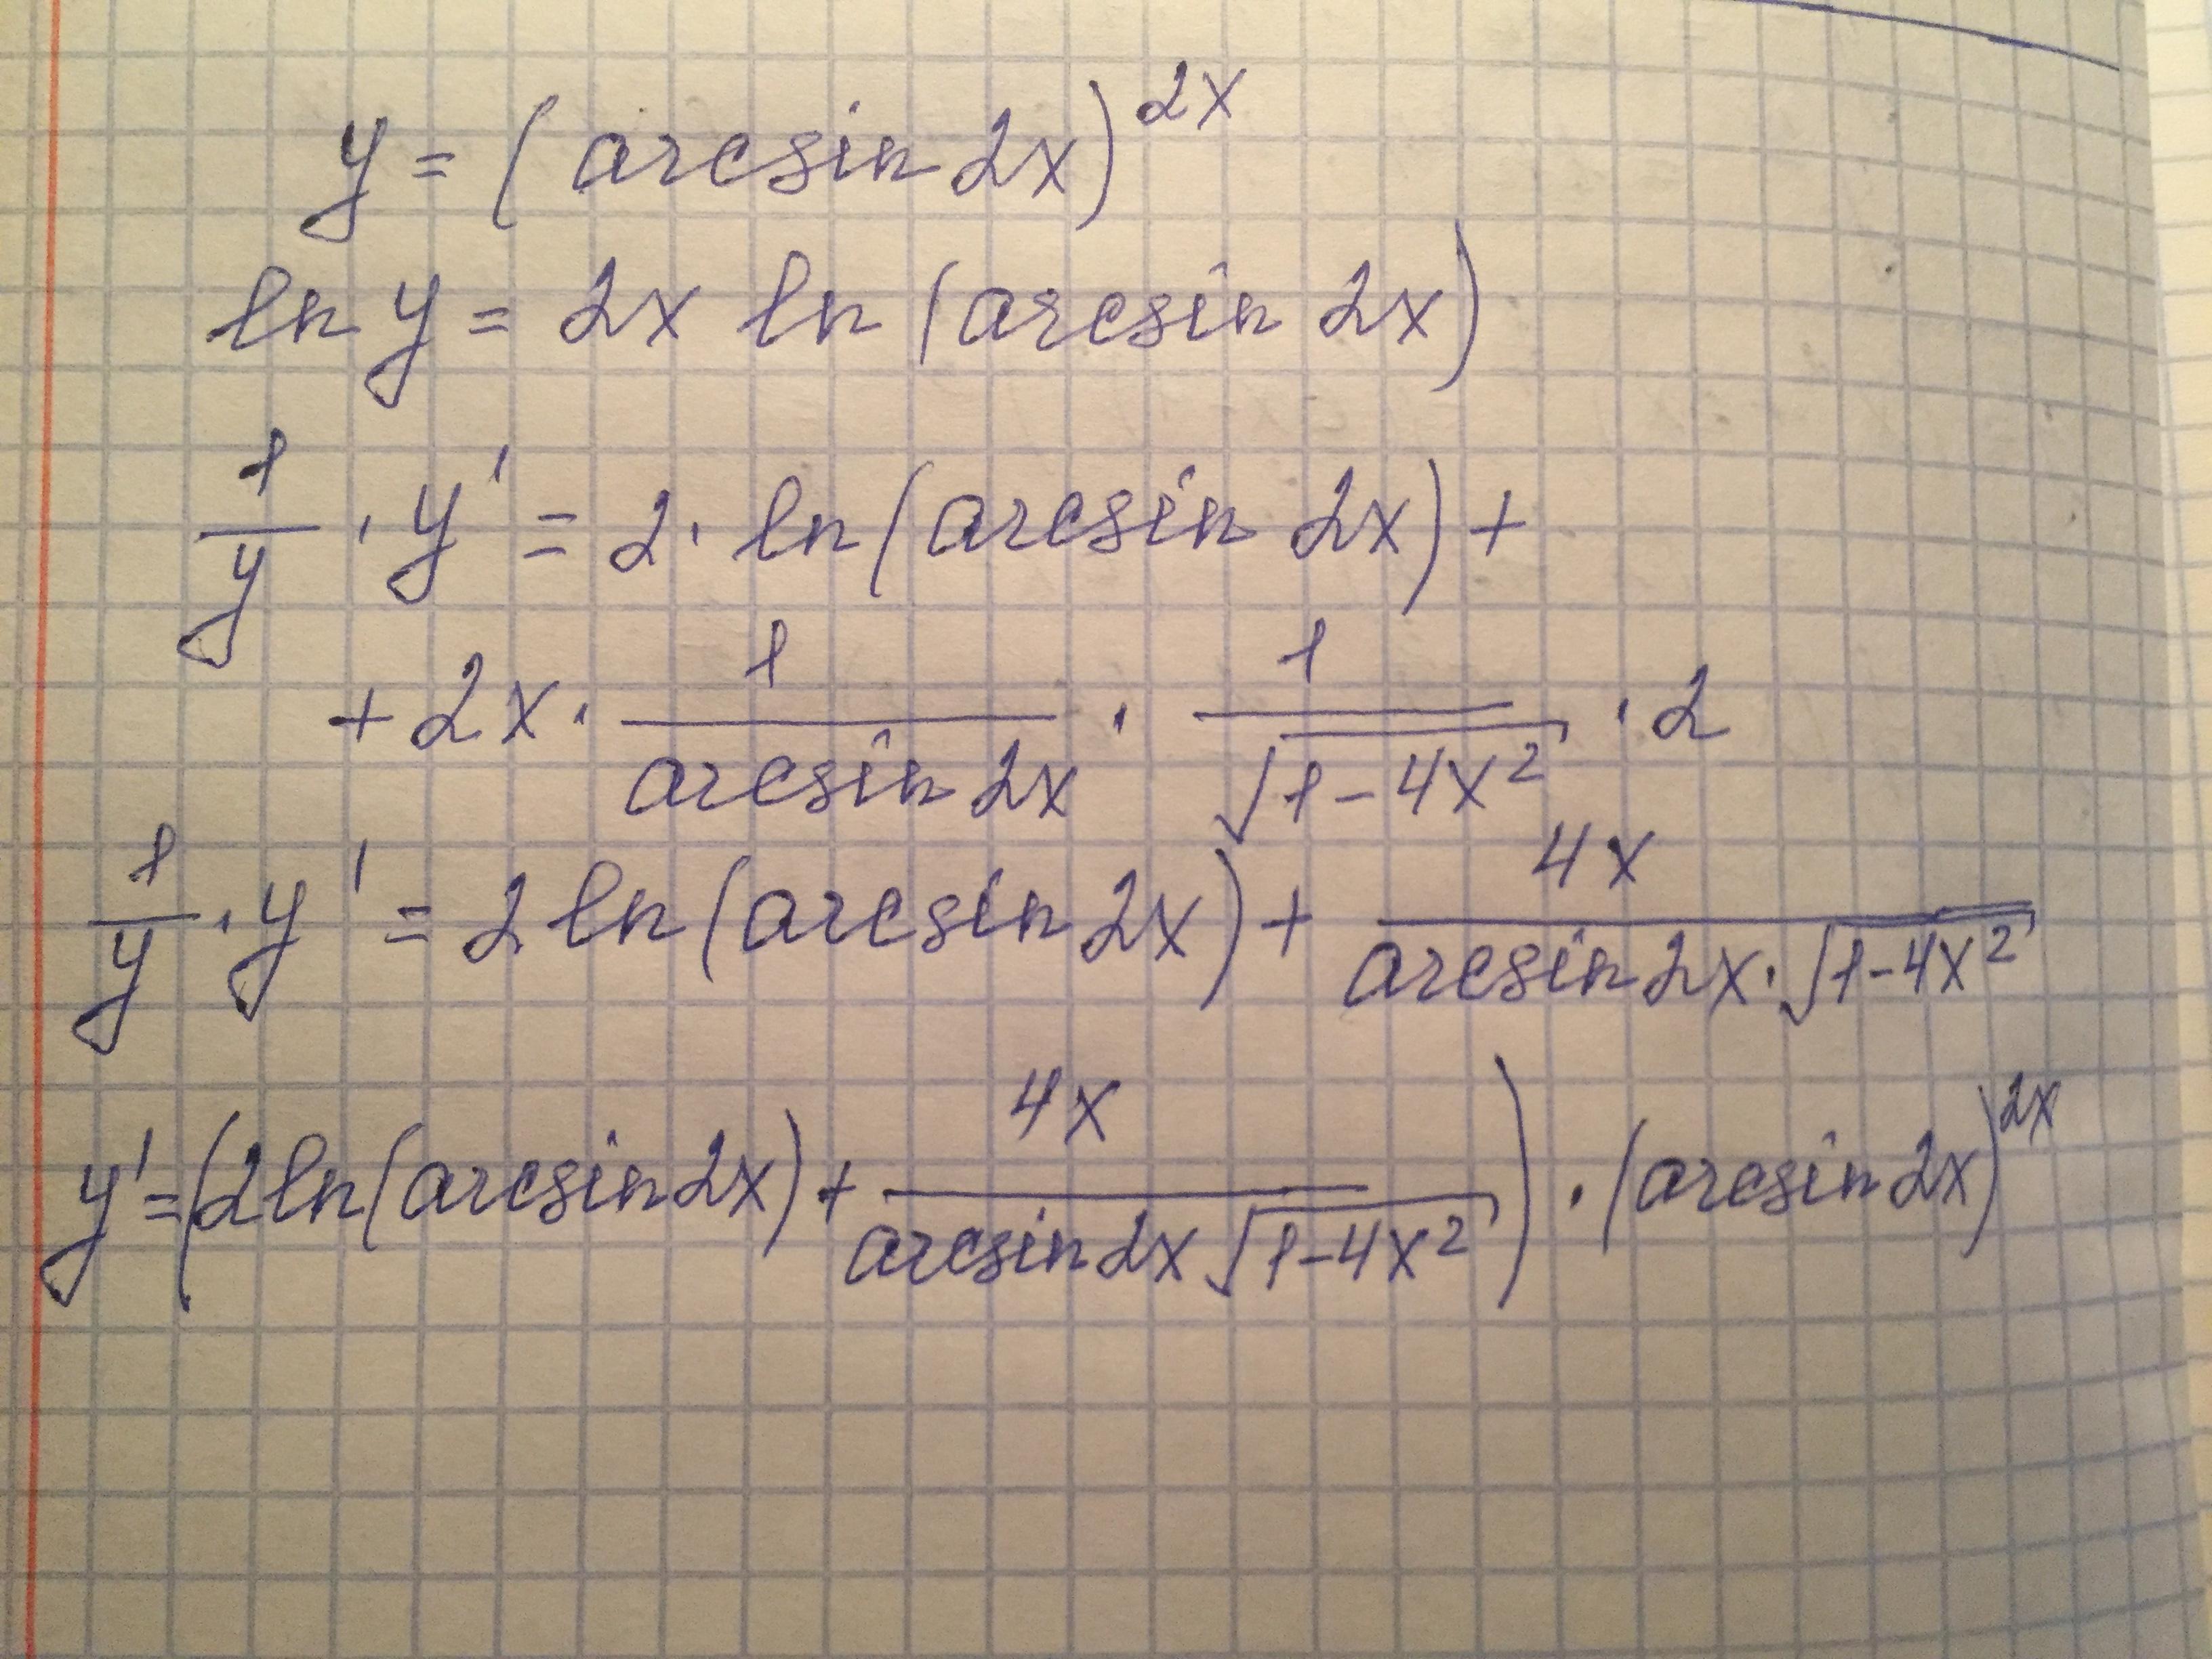 y = (arcsin 2x)^{2x}
ln y = 2x ln (arcsin 2x)
\frac{1}{y} · y' = 2 · ln (arcsin 2x) +
+ 2x · \frac{1}{arcsin 2x} · \frac{1}{\sqrt{1-4x^2}} · 2
\frac{1}{y} · y' = 2 ln (arcsin 2x) + \frac{4x}{arcsin 2x · \sqrt{1-4x^2}}
y' = (2 ln (arcsin 2x) + \frac{4x}{arcsin 2x \sqrt{1-4x^2}}) · (arcsin 2x)^{2x}